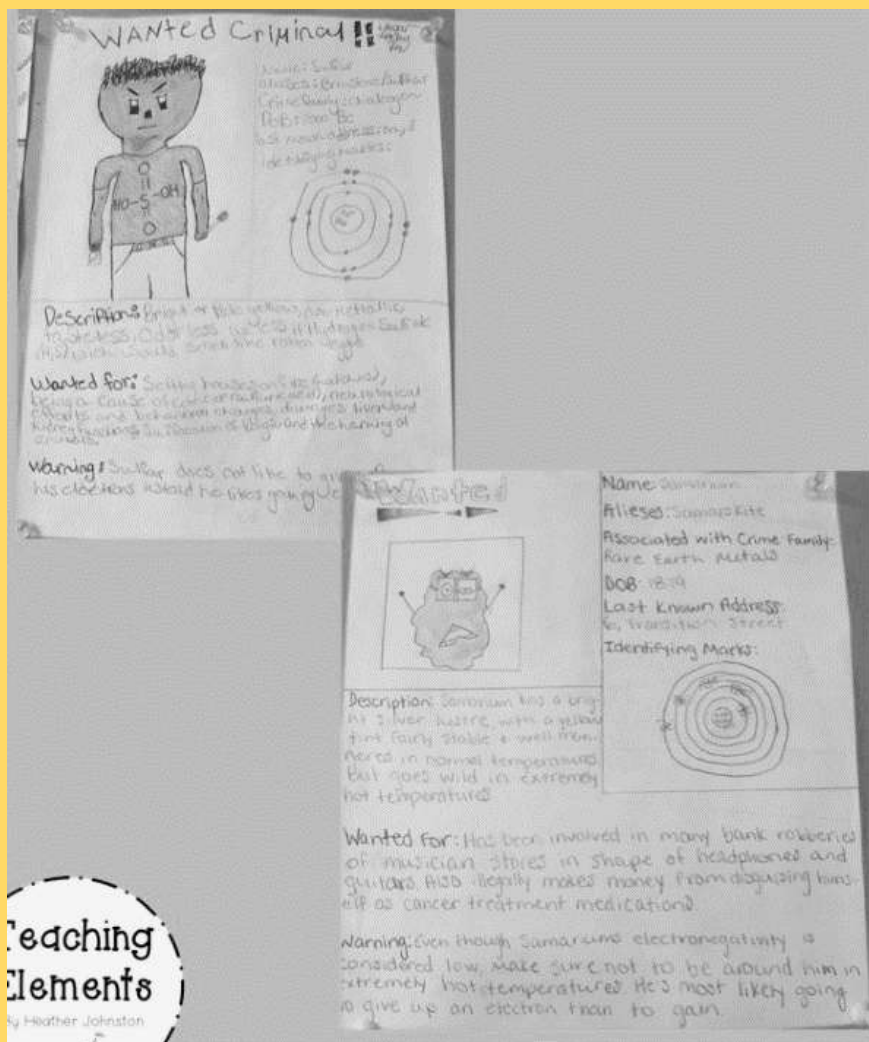 WANTED Criminal !!
Name: Sulfur
Aliases: Brimstone/Sulphur
Crime Family: Chalcogen
DOB: 2000 BC
last known address:
identifying marks:
O
HO-S-OH
O
Description: Bright or Pale yellow, non metallic,
tasteless, Odorless unless if Hydrogen Sulfide
(H₂S) which would smell like rotten eggs
Wanted for: Setting houses on fire
being a cause of cancer neurological
effects and behavioral changes, damages liver and
kidney functions, Suffocation of lungs and the harming of
animals.
Warning: Sulfur does not like to
his electrons instead he likes gaining
Wanted
Name: Samarium
Alieses: Samarskite
Associated with Crime Family:
Rare Earth Metals
DOB: 1879
Last Known Address:
6, Transition Street
Identifying Marks:
Description: Samarium has a brig-
ht silver lustre with a yellow
tint fairly stable + well man-
nered in normal temperatures
But goes wild in extremely
hot temperatures
Wanted For: Has been involved in many bank robberies
of musician stores in shape of headphones and
guitars. Also illegally makes money from disguising hims-
elf as cancer treatment medications.
Warning: Even though Samariums electronegativity is
considered low, Make sure not to be around him in
extremely hot temperatures. He's most likely going
to give up an electron than to gain.
Teaching
Elements
By Heather Johnston